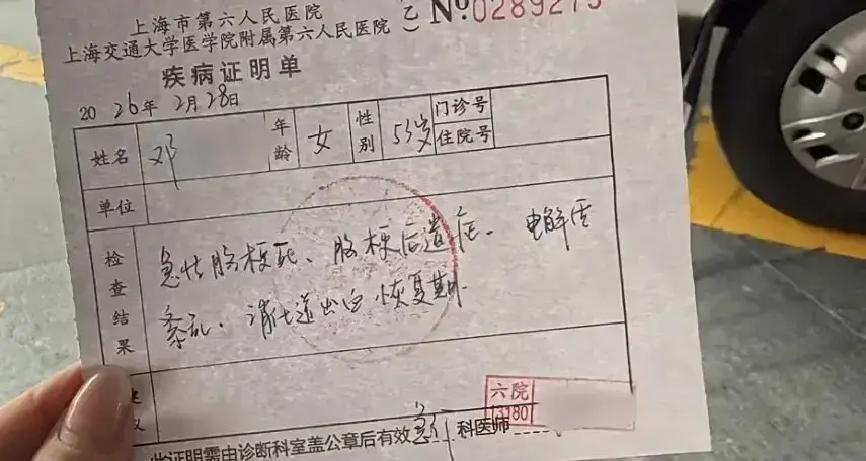 上海市第六人民医院
上海交通大学医学院附属第六人民医院
(乙) №0289275
疾病证明单
2026年2月28日
姓名 邓 年龄 女 性别 53岁 门诊号 住院号
单位
检查结果 急性脑梗死、脑梗后遗症、电解质
紊乱、消化道出血恢复期
六院
3180
此证明需由诊断科室盖公章后有效 急 科医师